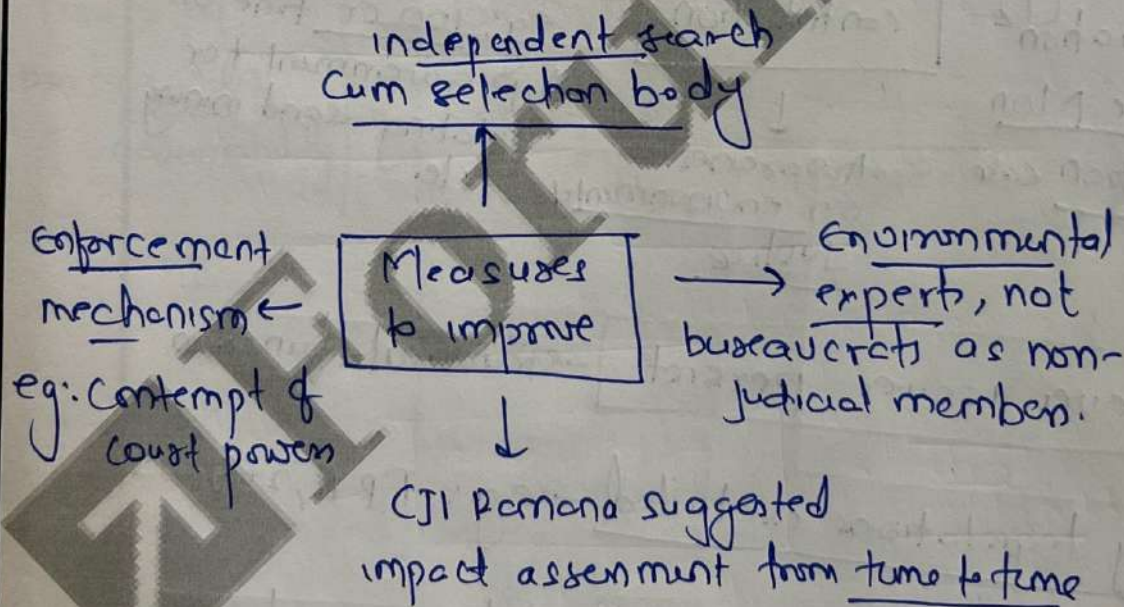 independent search
cum selection body
Enforcement
mechanism
eg: Contempt of
court powers
Measures
to improve
Environmental
experts, not
bureaucrats as non-
judicial members.
CJI Ramana suggested
impact assessment from time to time
Forum